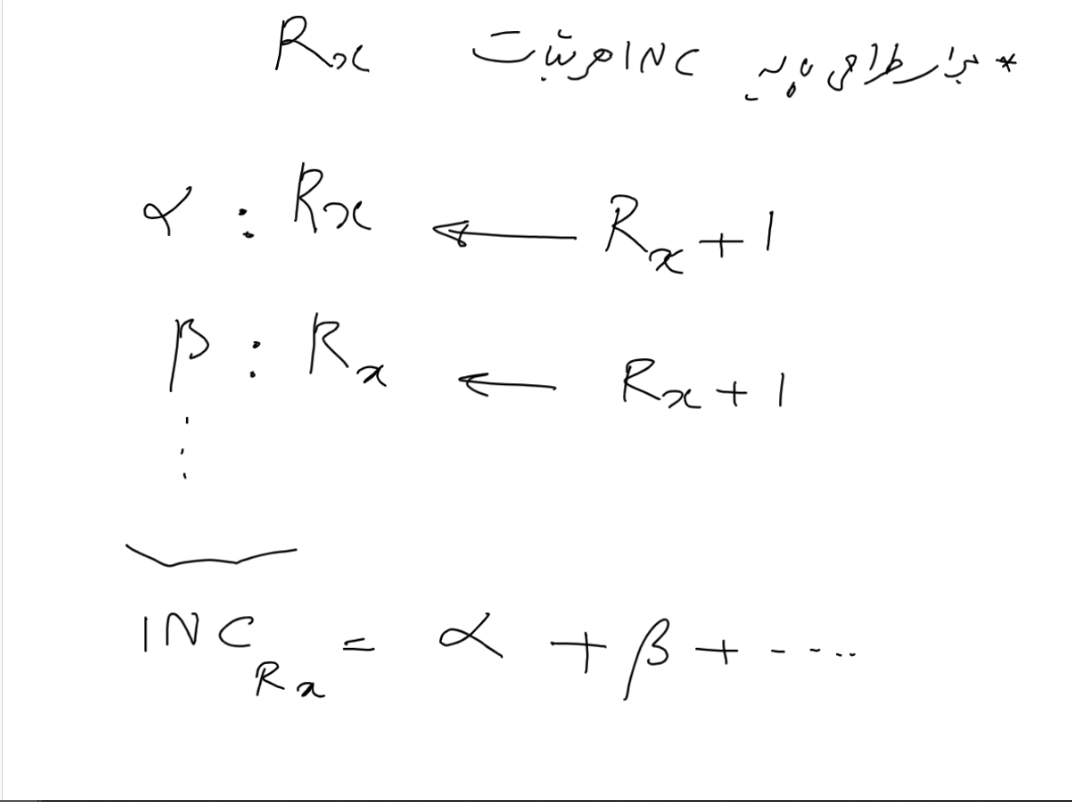 * برای طراحی پایه INC هر ثبات Rx
α : Rx ← Rx + 1
β : Rx ← Rx + 1
⋮
INC Rx = α + β + ....